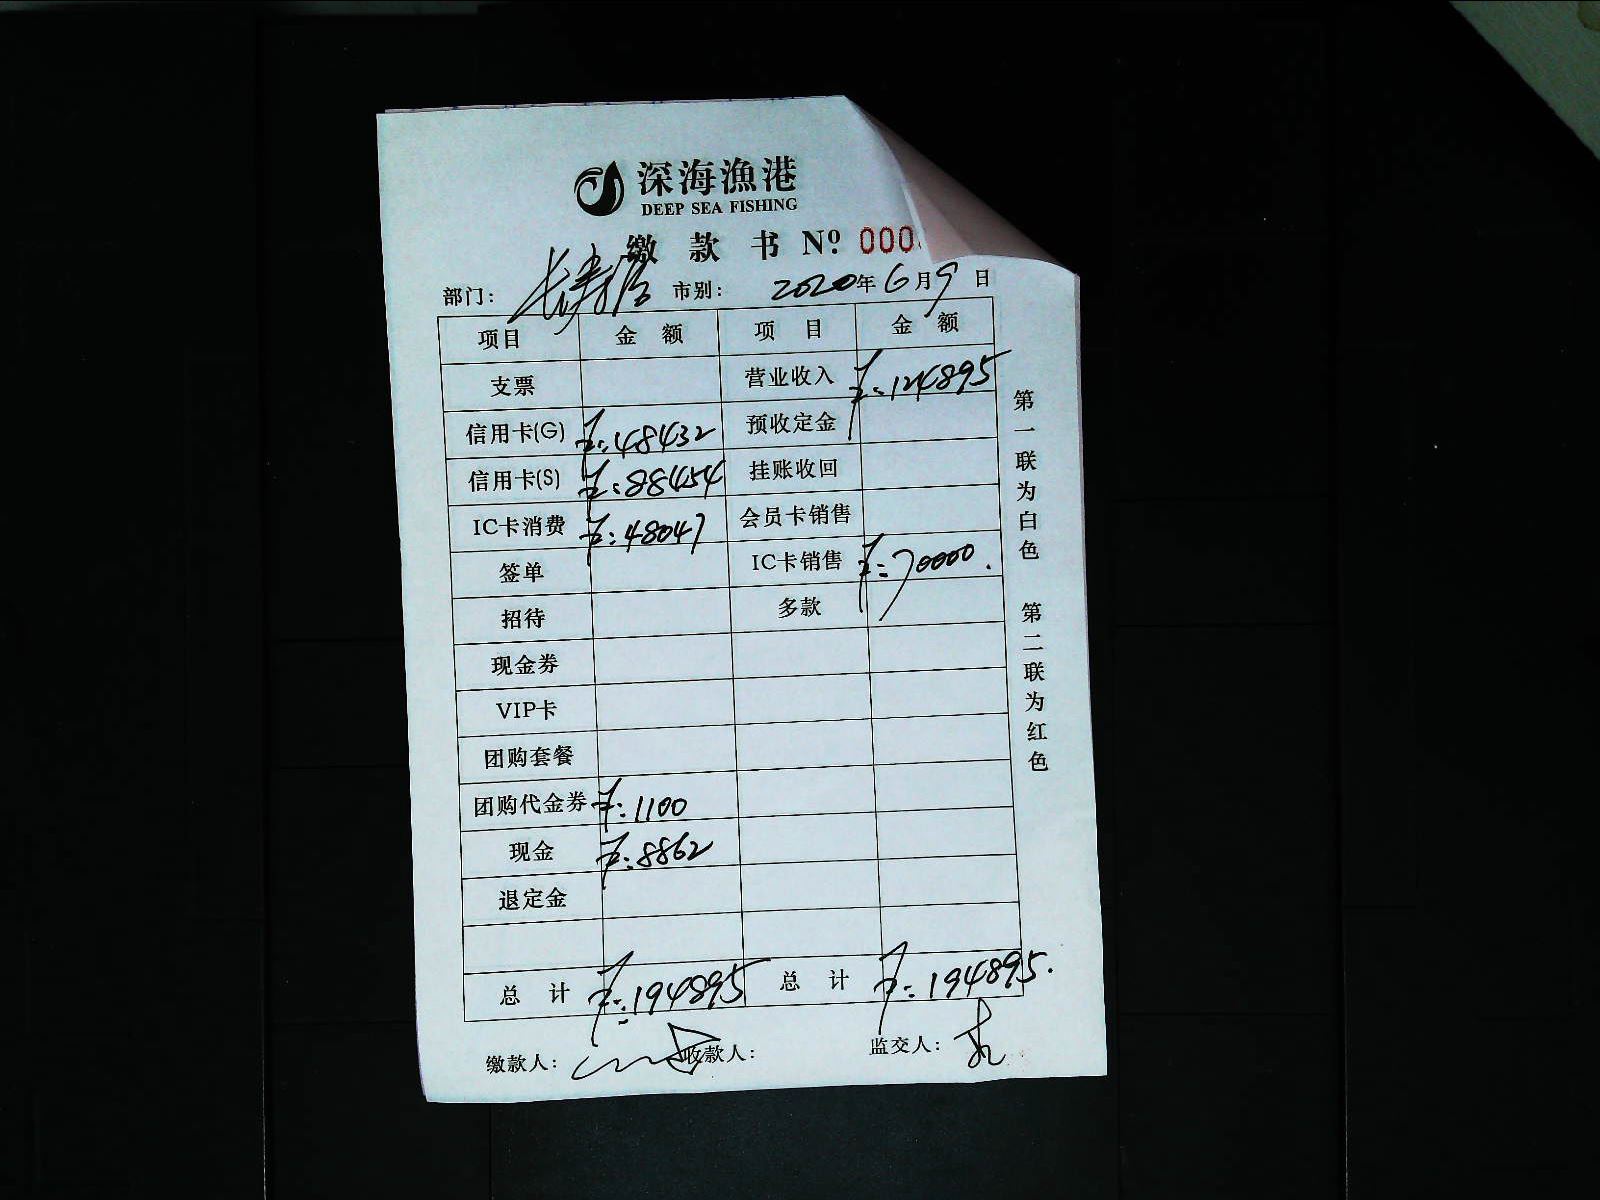 深海漁港
DEEP SEA FISHING
缴款书 Nº 000
部门： 市别： 2020年6月9日
项目 金额 项目 金额
支票 营业收入 ¥:124895
信用卡(G) ¥:48432 预收定金
信用卡(S) ¥:88454 挂账收回
IC卡消费 ¥:48047 会员卡销售
签单 IC卡销售 ¥:70000.
招待 多款
现金券
VIP卡
团购套餐
团购代金券 ¥:1100
现金 ¥:8862
退定金
总计 ¥:194895 总计 ¥:194895.
缴款人： 收款人： 监交人：
第一联为白色 第二联为红色